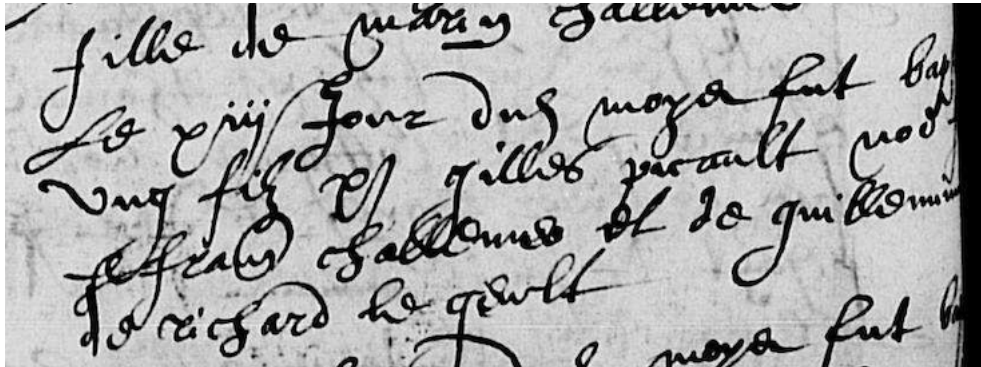 fille de marin challemes
Le xiiij Jour dud moyes fut bap
ung filz po gilles picault nod
fr fran challemes et de guillemin
de richard le geult
moyes fut ba